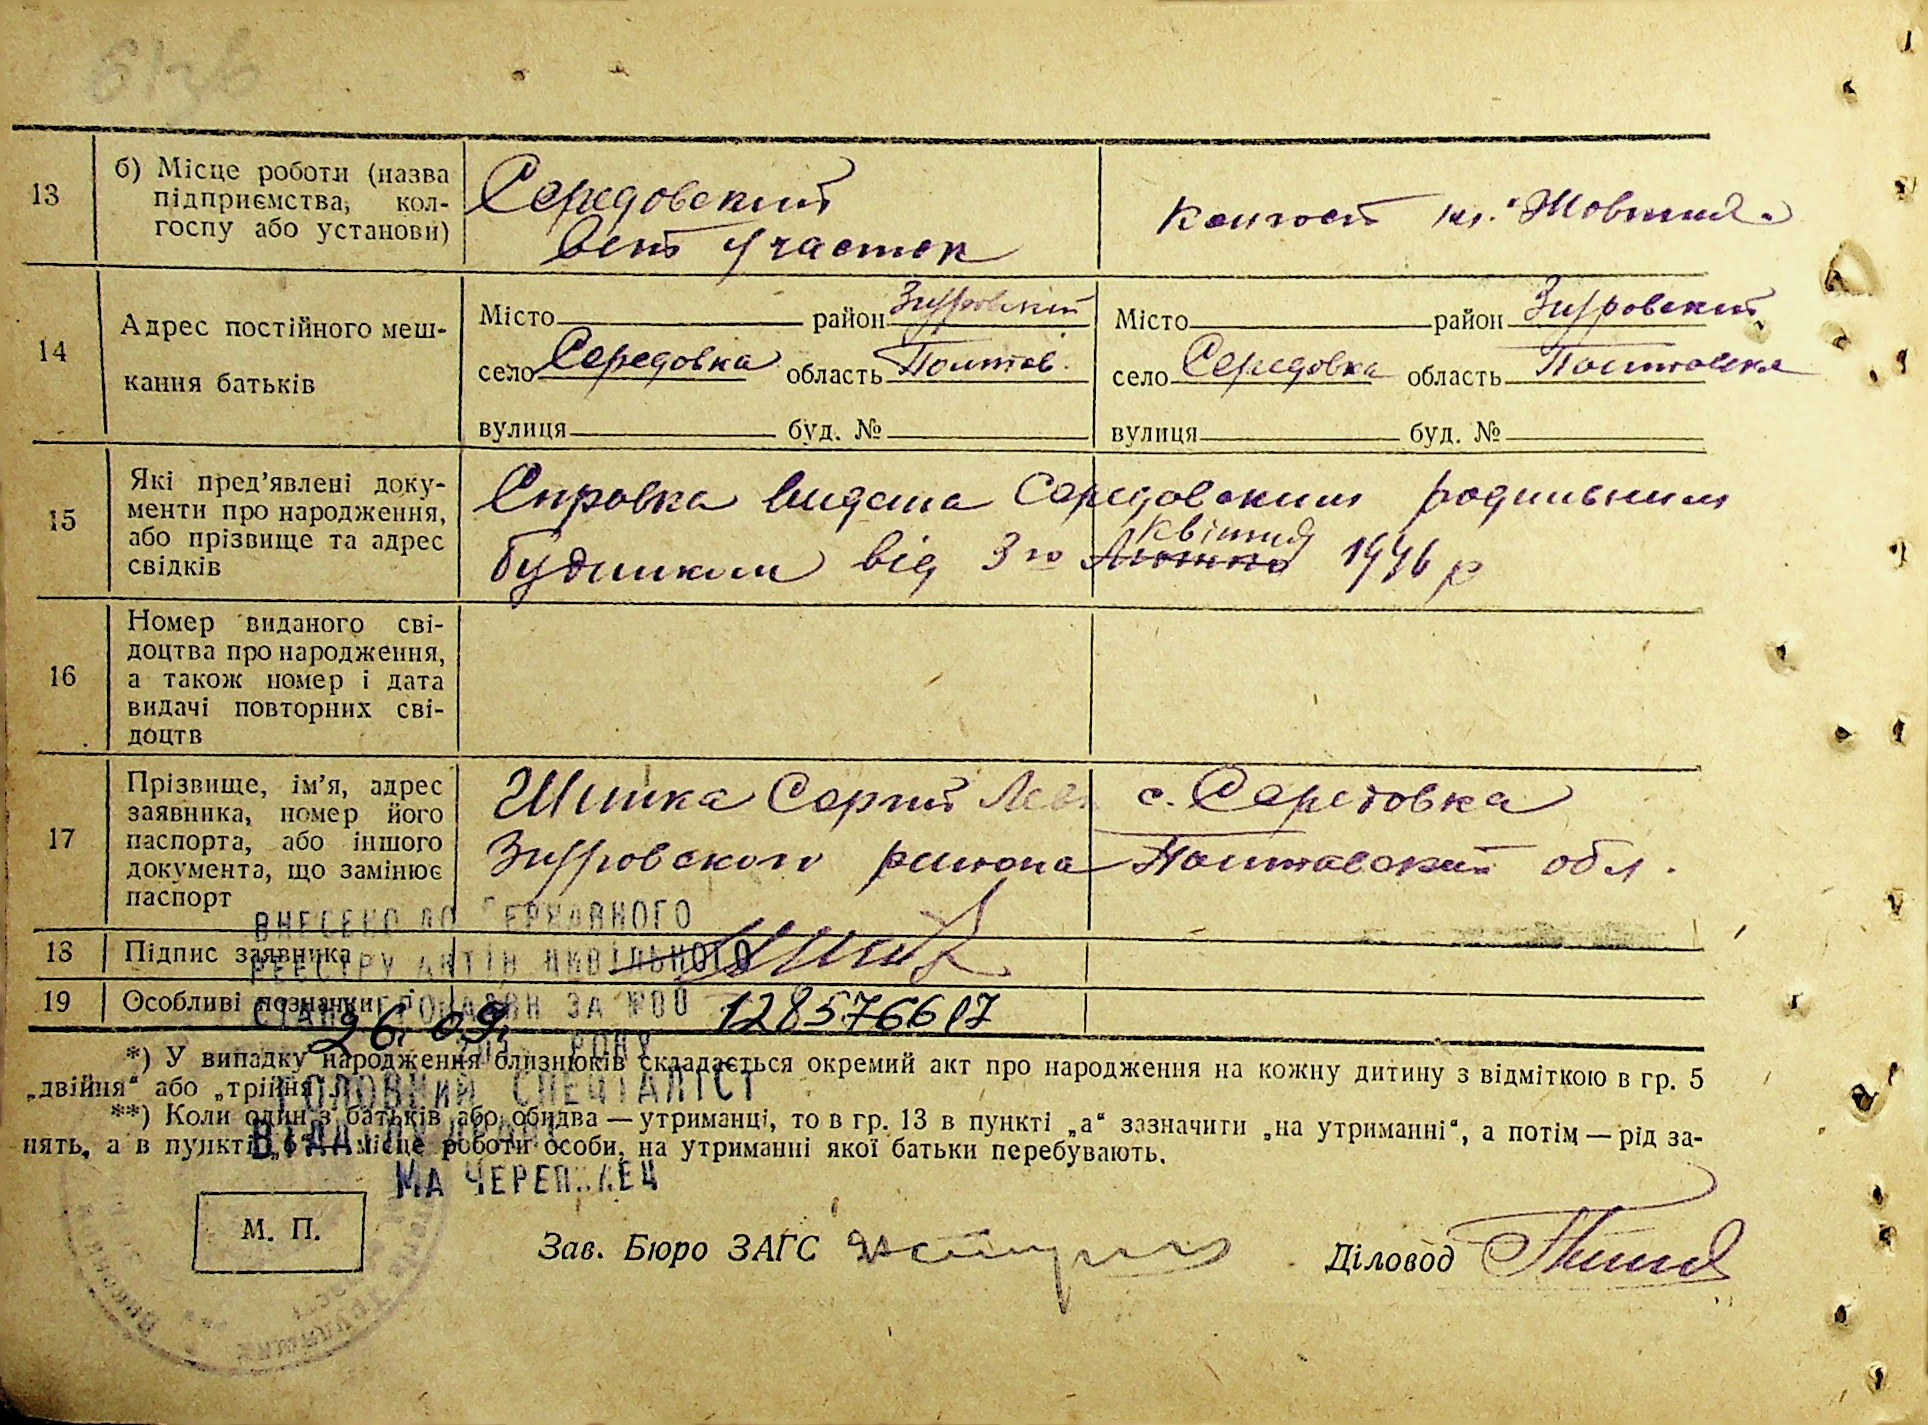 13 б) Місце роботи (назва підприємства, колгоспу або установи)
Середовский
вет участок
колгосп ім. Жовтня
14 Адрес постійного мешкання батьків
Місто район Згуровский
село Середовка область Полтав.
вулиця буд. №
Місто район Згуровский
село Середовка область Полтавска
вулиця буд. №
15 Які пред'явлені документи про народження, або прізвище та адрес свідків
Справка видана Середовским родильним
будинком від 3го квітня 1946 р
16 Номер виданого свідоцтва про народження, а також номер і дата видачі повторних свідоцтв
17 Прізвище, ім'я, адрес заявника, номер його паспорта, або іншого документа, що замінює паспорт
Шишка Сергий с. Середовка
Згуровского района Полтавский обл.
ВНЕСЕНО ДО ДЕРЖАВНОГО
18 Підпис заявника
РЕЄСТРУ АКТІВ ЦИВІЛЬНОГО
19 Особливі позначки
СТАНУ ГРОМАДЯН ЗА №00
26. 09. 128576617
РОКУ
*) У випадку народження близнюків складається окремий акт про народження на кожну дитину з відміткою в гр. 5
„двійня“ або „трійня“.
ГОЛОВНИЙ СПЕЦІАЛІСТ
**) Коли один з батьків або обидва — утриманці, то в гр. 13 в пункті „а“ зазначити „на утриманні“, а потім — рід за-
нять, а в пункті „б“ — місце роботи особи, на утриманні якої батьки перебувають.
М. П.
Зав. Бюро ЗАГС
Діловод